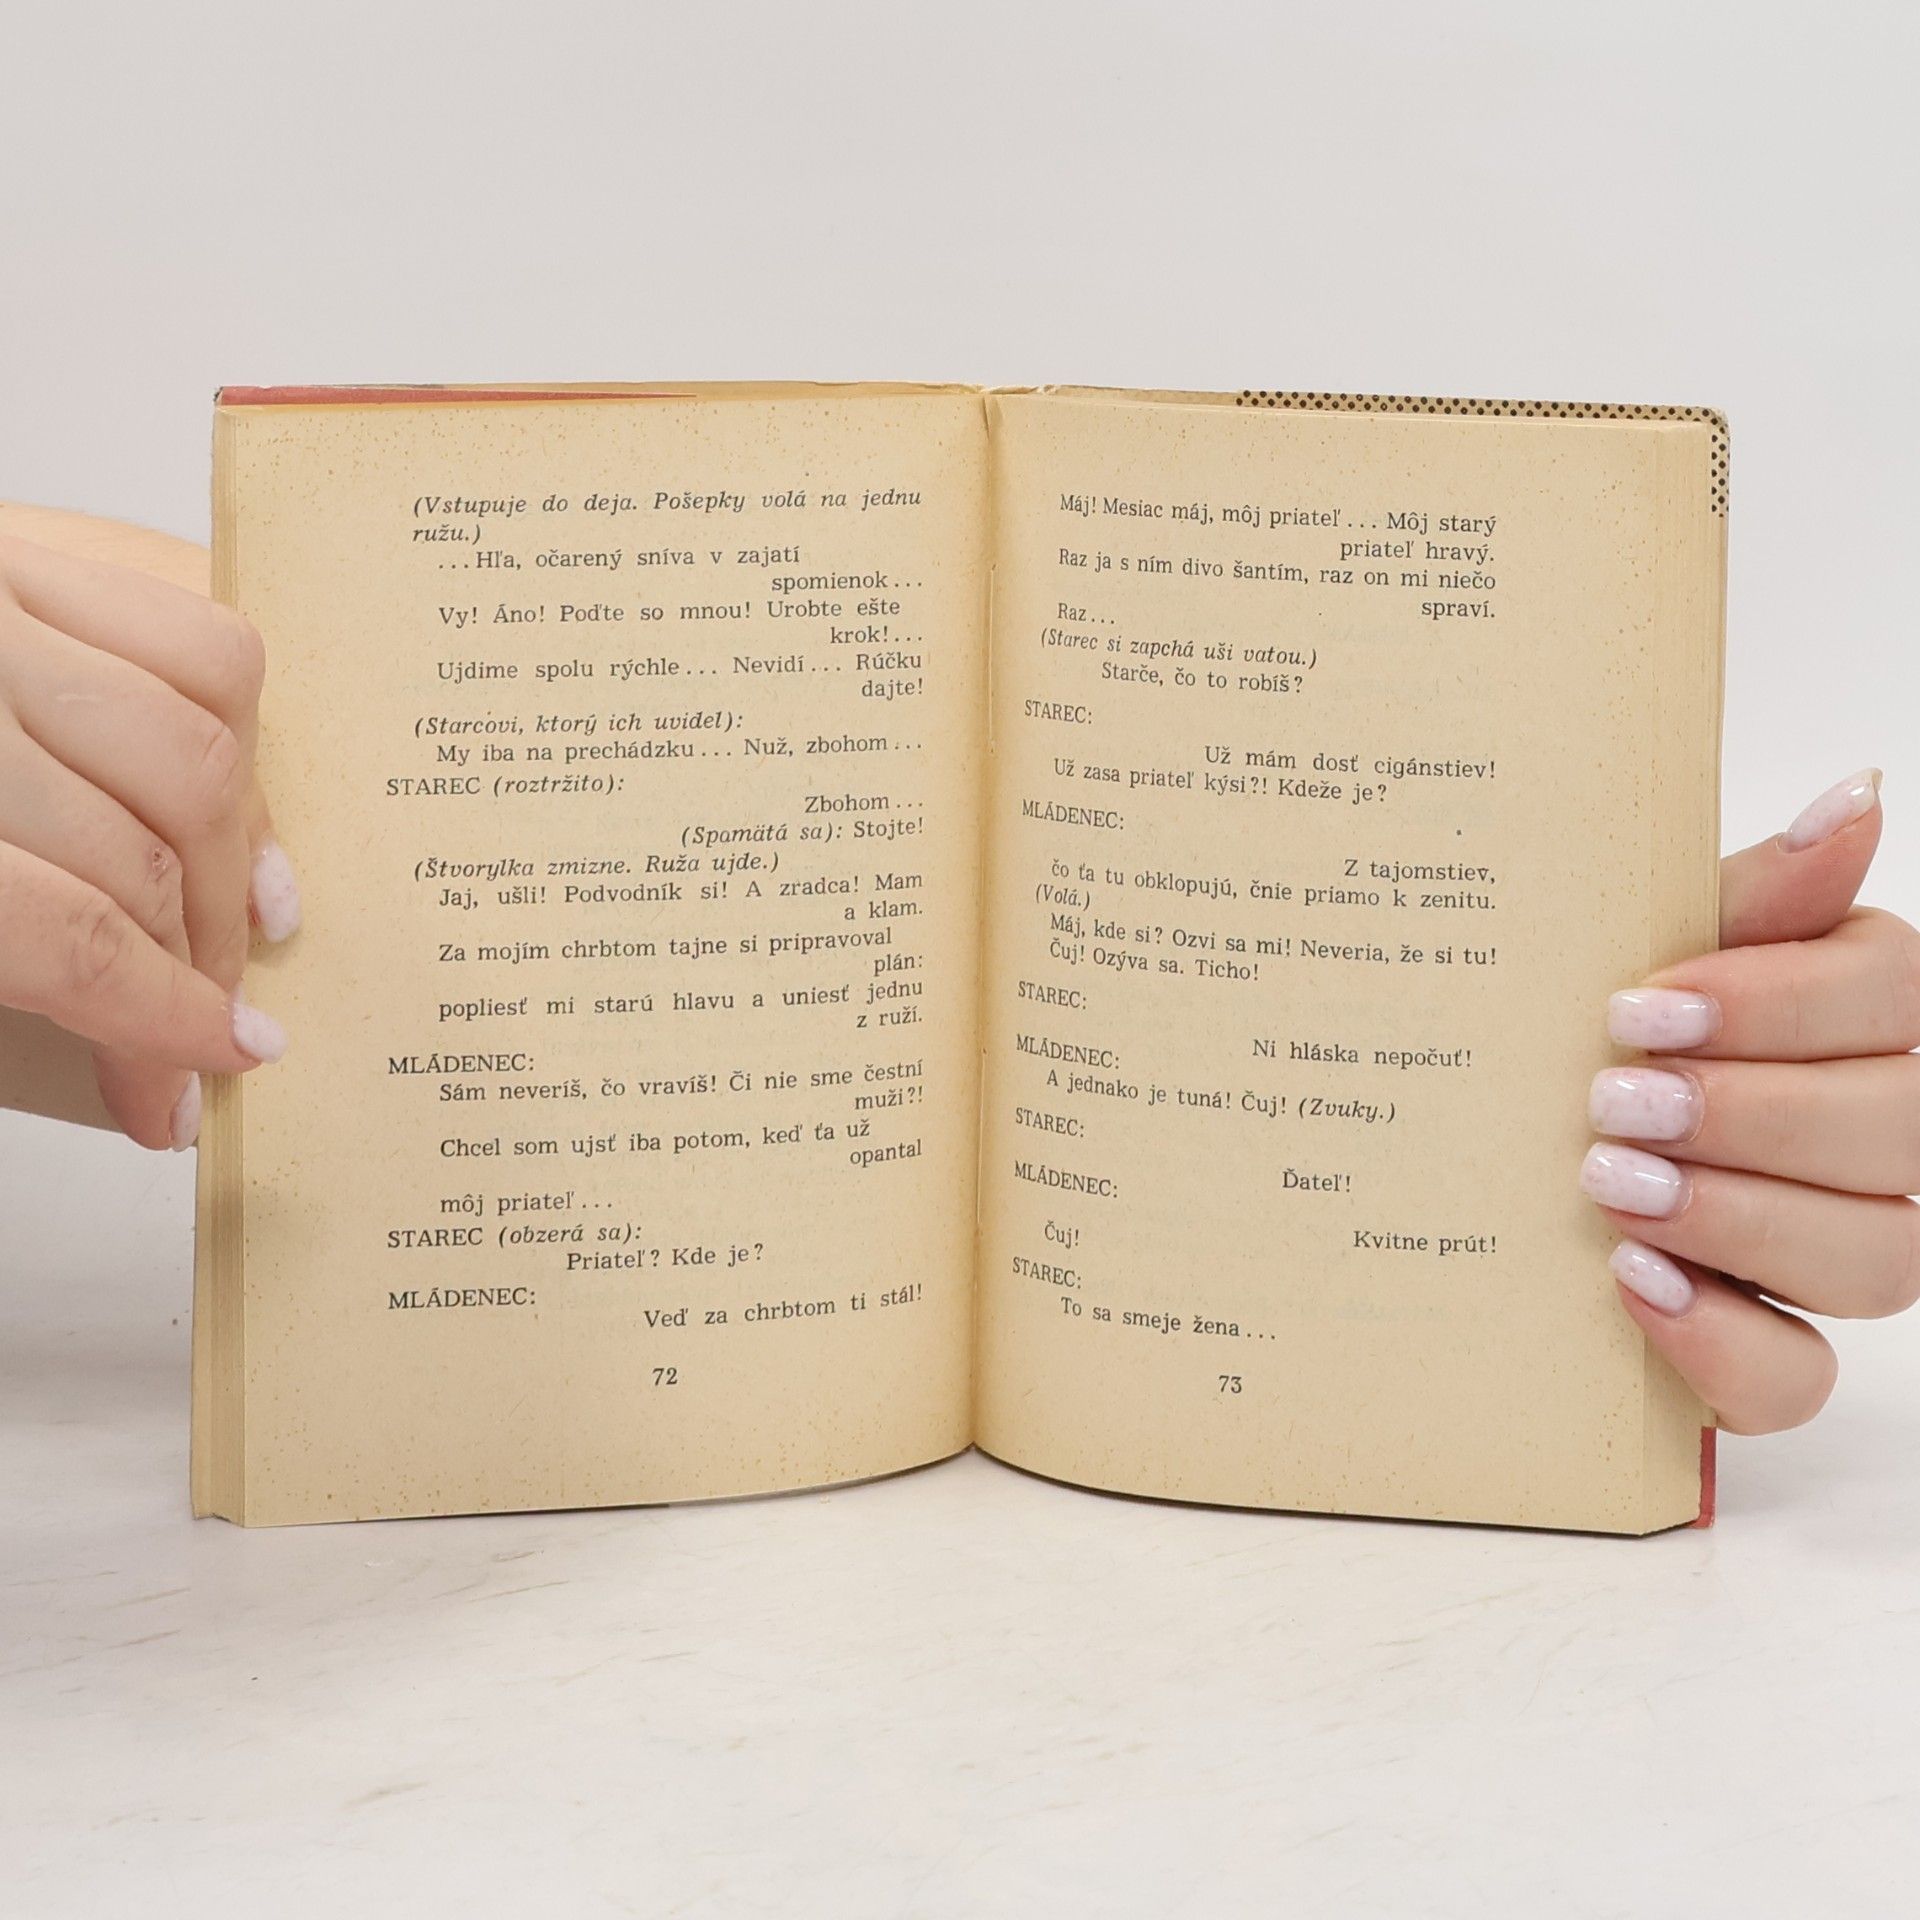 (Vstupuje do deja. Pošepky volá na jednu
ružu.)
...Hľa, očarený sníva v zajatí
spomienok...
Vy! Áno! Poďte so mnou! Urobte ešte
krok!...
Ujdime spolu rýchle... Nevidí... Rúčku
dajte!
(Starcovi, ktorý ich uvidel):
My iba na prechádzku... Nuž, zbohom...
STAREC (roztržito):
Zbohom...
(Spamätá sa): Stojte!
(Štvorylka zmizne. Ruža ujde.)
Jaj, ušli! Podvodník si! A zradca! Mam
a klam.
Za mojím chrbtom tajne si pripravoval
plán:
popliesť mi starú hlavu a uniesť jednu
z ruží.
MLÁDENEC:
Sám neveríš, čo vravíš! Či nie sme čestní
muži?!
Chcel som ujsť iba potom, keď ťa už
opantal
môj priateľ...
STAREC (obzerá sa):
Priateľ? Kde je?
MLÁDENEC:
Veď za chrbtom ti stál!
72
Máj! Mesiac máj, môj priateľ... Môj starý
priateľ hravý.
Raz ja s ním divo šantím, raz on mi niečo
spraví.
Raz...
(Starec si zapchá uši vatou.)
Starče, čo to robíš?
STAREC:
Už mám dosť cigánstiev!
Už zasa priateľ kýsi?! Kdeže je?
MLÁDENEC:
Z tajomstiev,
čo ťa tu obklopujú, čnie priamo k zenitu.
(Volá.)
Máj, kde si? Ozvi sa mi! Neveria, že si tu!
Čuj! Ozýva sa. Ticho!
STAREC:
Ni hláska nepočuť!
MLÁDENEC:
A jednako je tuná! Čuj! (Zvuky.)
STAREC:
Ďateľ!
MLÁDENEC:
Čuj! Kvitne prút!
STAREC:
To sa smeje žena...
73